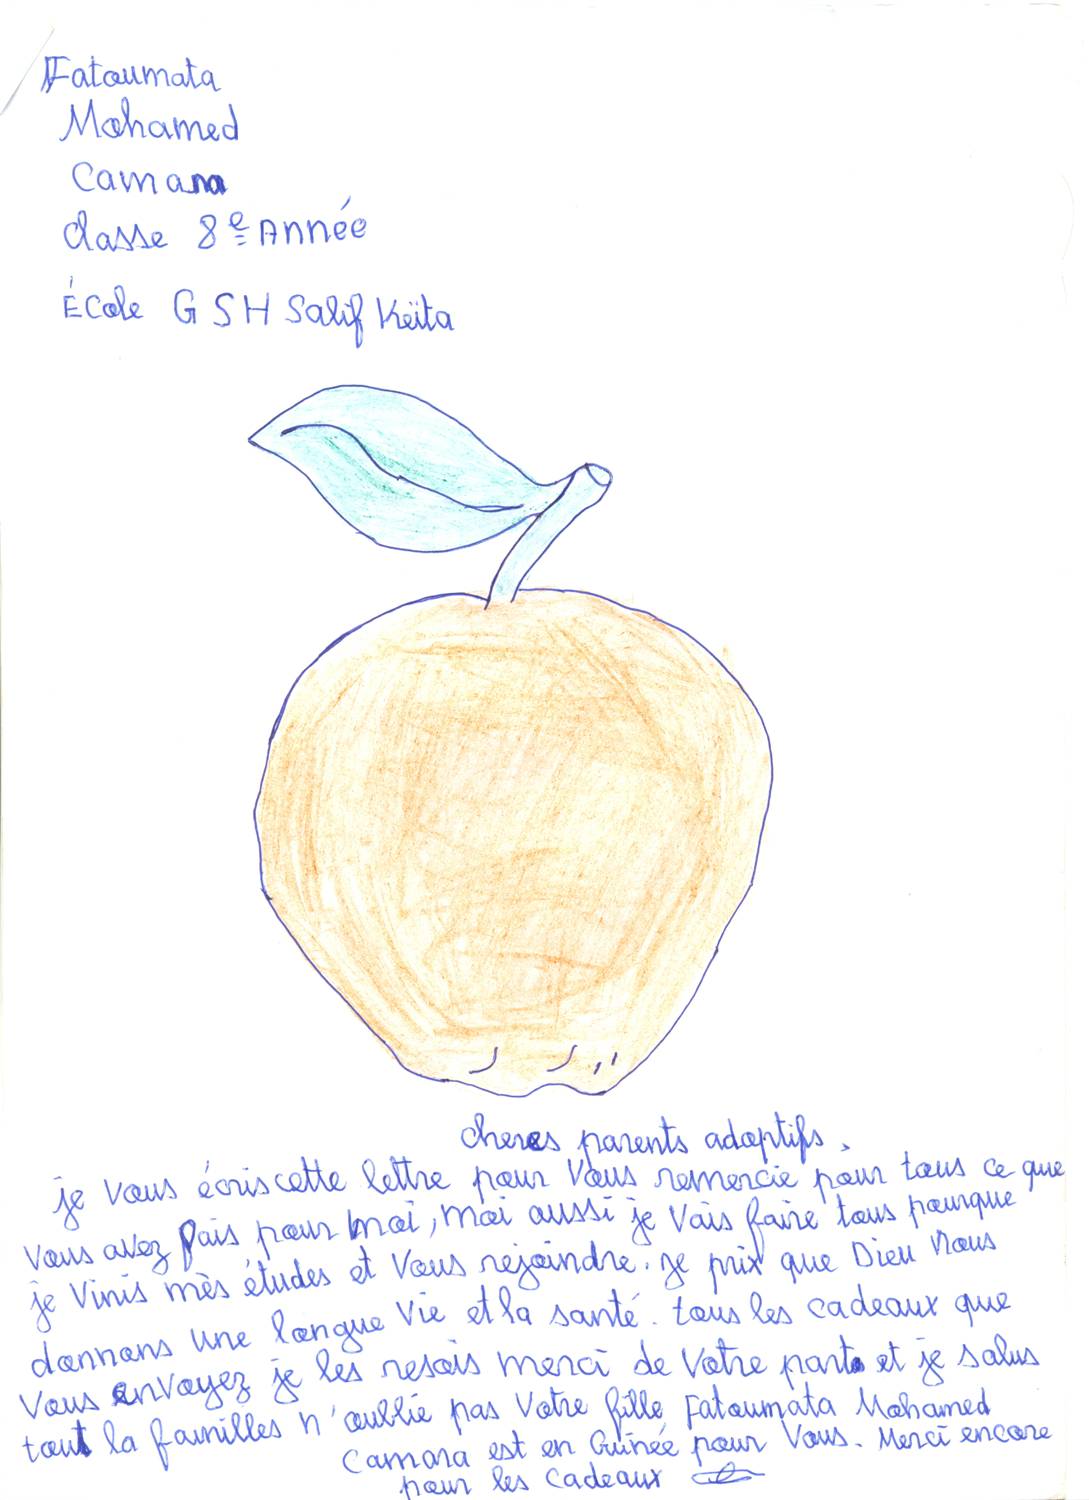 Fatoumata
Mohamed
Camara
Classe 8e Année
École G S H Salif Keïta
cheres parents adoptifs,
je vous écris cette lettre pour vous remercie pour tous ce que
vous avez fais pour moi, moi aussi je vais faire tous pourque
je vinis mès études et vous rejoindre. je prix que Dieu nous
donnons une longue vie et la santé. tous les cadeaux que
vous envoyez je les resois merci de votre part et je salus
tout la familles n'oublie pas votre fille Fatoumata Mohamed
Camara est en Guinée pour vous. Merci encore
pour les cadeaux